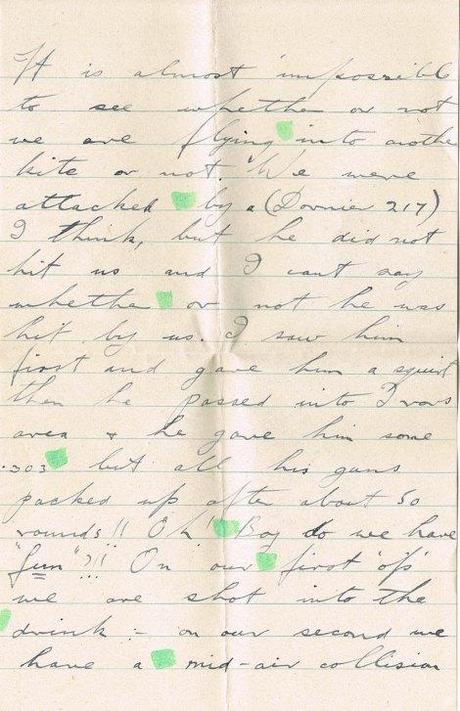 It is almost impossible
to see whether or not
we are flying into anothe
kite or not. We were
attacked by a (Dornier 217)
I think, but he did not
hit us and I cant say
whether or not he was
hit by us. I saw him
first and gave him a squirt
then he passed into Ivors
area & he gave him some
.303 but all his guns
packed up after about 50
rounds!! Oh! Boy do we have
"fun"?!! On our first 'ops'
we are shot into the
drink :- on our second we
have a mid-air collision